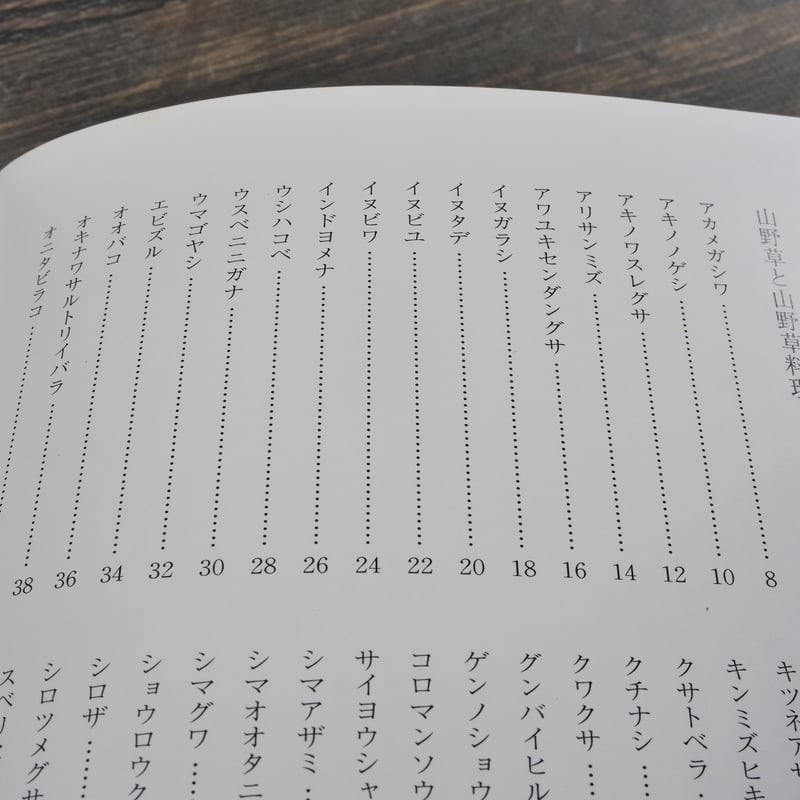 山野草と山野草料理
アカメガシワ……………………8
アキノノゲシ……………………10
アキノワスレグサ……………………12
アリサンミズ……………………14
アワユキセンダングサ……………………16
イヌガラシ……………………18
イヌタデ……………………20
イヌビユ……………………22
イヌビワ……………………24
インドヨメナ……………………26
ウシハコベ……………………28
ウスベニニガナ……………………30
ウマゴヤシ……………………32
エビズル……………………34
オオバコ……………………36
オキナワサルトリイバラ……………………38
オニタビラコ……………………
キツネア
キンミズヒキ
クサトベラ…
クチナシ……
クワクサ……
グンバイヒル
ゲンノショウ
コロマンソウ
サイヨウシャ
シマアザミ…
シマオオタニ
シマグワ……
ショウロウク
シロザ………
シロツメグサ
スベリ